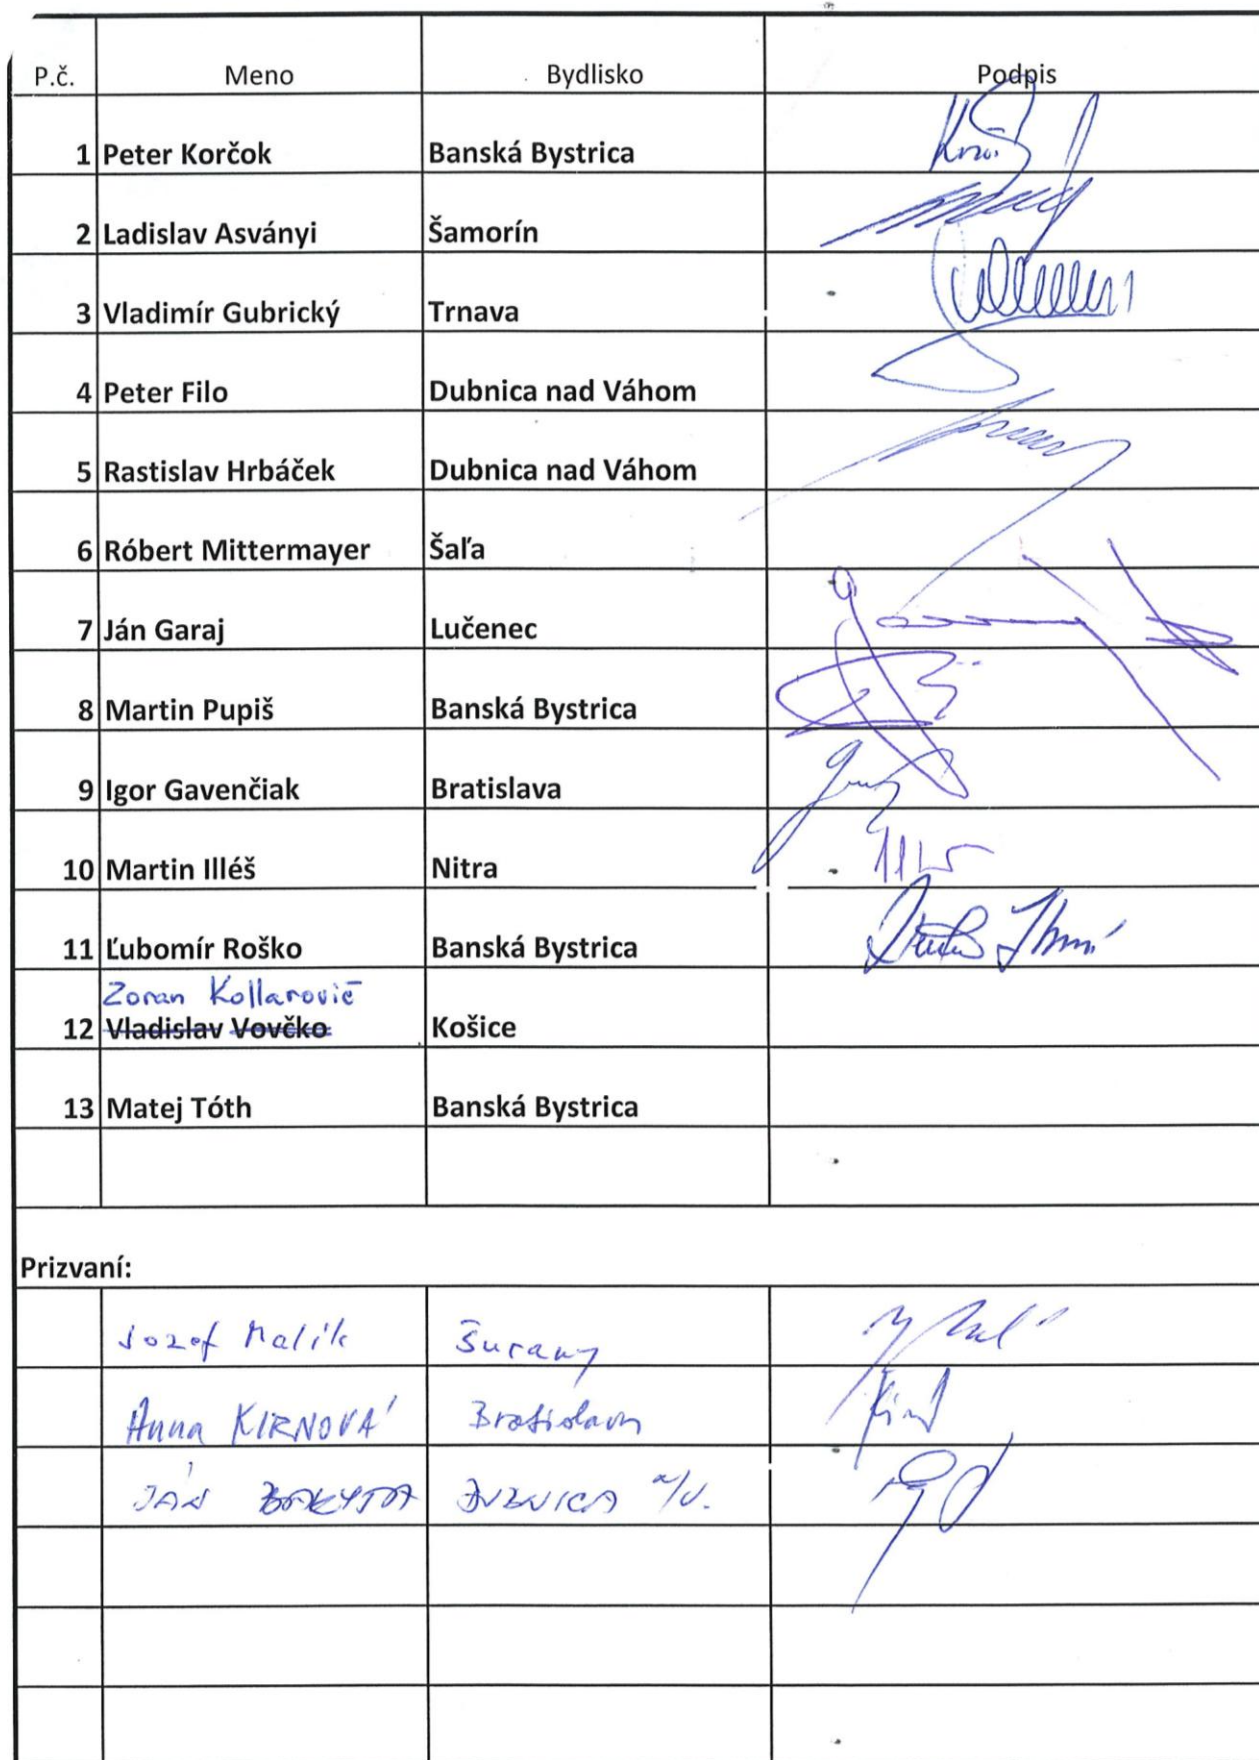 P.č. Meno Bydlisko Podpis
1 Peter Korčok Banská Bystrica
2 Ladislav Asványi Šamorín
3 Vladimír Gubrický Trnava
4 Peter Filo Dubnica nad Váhom
5 Rastislav Hrbáček Dubnica nad Váhom
6 Róbert Mittermayer Šaľa
7 Ján Garaj Lučenec
8 Martin Pupiš Banská Bystrica
9 Igor Gavenčiak Bratislava
10 Martin Illéš Nitra
11 Ľubomír Roško Banská Bystrica
Zoran Kollarovič
12 Vladislav Vovčko Košice
13 Matej Tóth Banská Bystrica
Prizvaní:
Jozef Malík Šurany
Anna KIRNOVÁ Bratislava
JÁN DUBNICA n/V.